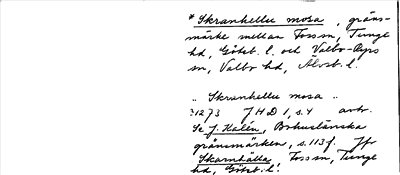 * Skranhellu mosa, gräns-
märke mellan Foss sn, Tunge
hd, Göteb. l. och Valbo-Ryrs
sn, Valbo hd, Älvsb. l.
„ Skranhellu mosa „
1273 J H D 1, s. 4 avtr.
Se J. Kalén, Bohuslänska
gränsmärken, s. 113 f. Jfr
Skarnhälla, Foss sn, Tunge
hd, Göteb. l.